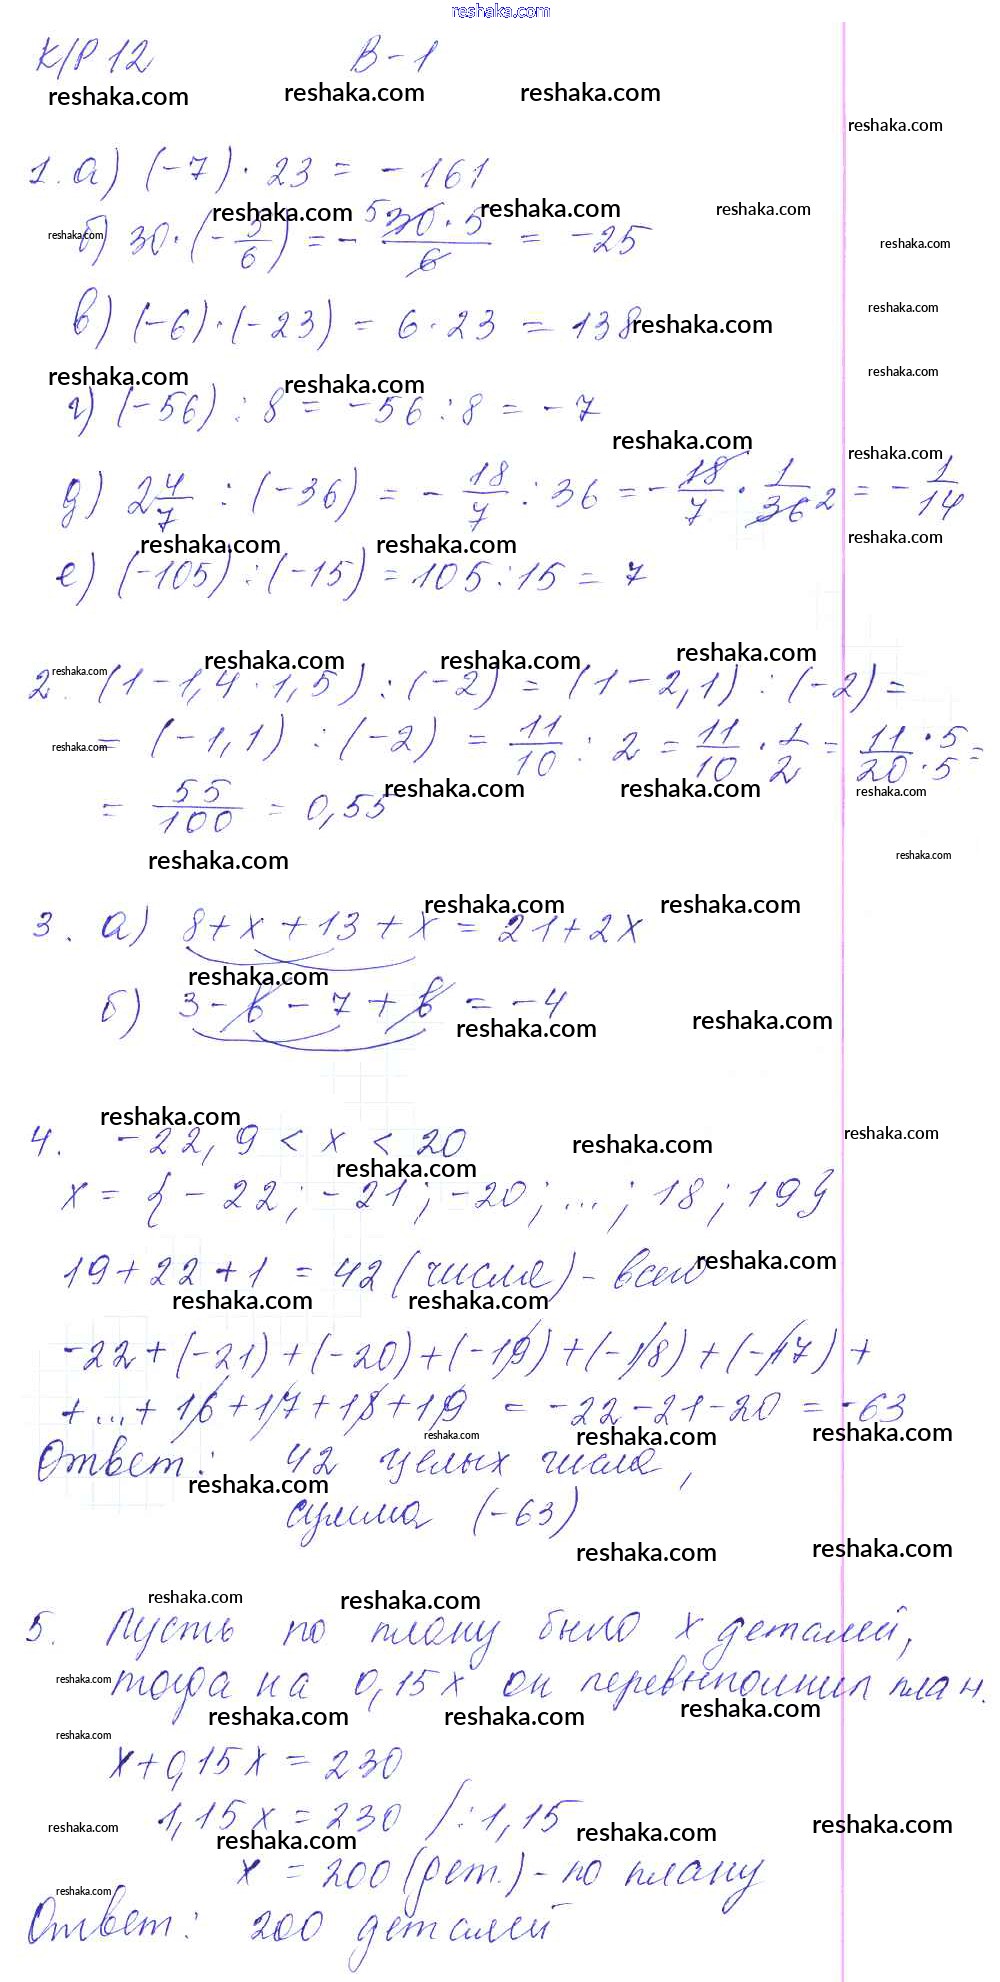 reshaka.com
К/Р 12 В-1
1. а) (-7) · 23 = - 161
б) 30 · (- 5/6) = - 30 · 5 / 6 5 = -25
в) (-6) · (-23) = 6 · 23 = 138
г) (-56) : 8 = -56 : 8 = -7
д) 2 4/7 : (-36) = - 18/7 : 36 = - 18/7 · 1/36 2 = - 1/14
е) (-105) : (-15) = 105 : 15 = 7
2. (1 - 1,4 · 1,5) : (-2) = (1 - 2,1) : (-2) =
= (-1,1) : (-2) = 11/10 : 2 = 11/10 · 1/2 = 11 · 5 / 20 · 5 =
= 55/100 = 0,55
3. а) 8 + x + 13 + x = 21 + 2x
б) 3 - в - 7 + в = -4
4. -22,9 < x < 20
x = {-22; -21; -20; ...; 18; 19}
19 + 22 + 1 = 42 (числа) - всего
-22 + (-21) + (-20) + (-19) + (-18) + (-17) +
+ ... + 16 + 17 + 18 + 19 = -22 - 21 - 20 = -63
Ответ: 42 целых числа,
сумма (-63)
5. Пусть по плану было x деталей,
тогда на 0,15x он перевыполнил план.
x + 0,15x = 230
1,15x = 230 /: 1,15
x = 200 (дет.) - по плану
Ответ: 200 деталей